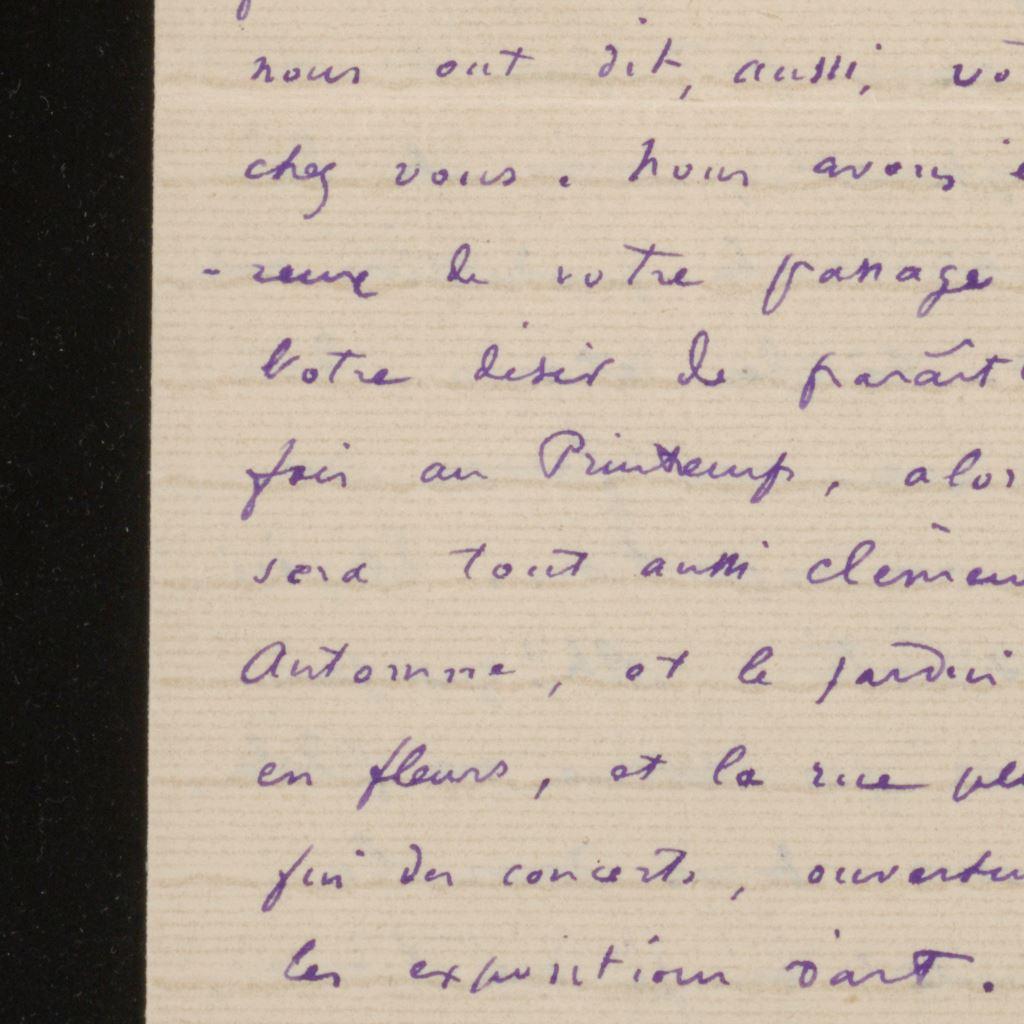 nous ont dit, aussi, vo
chez vous. Nous avons é
-reux de votre passage
Votre désir de paraît
fois au Printemps, alors
sera tout aussi clémen
Automne, et le jardin
en fleurs, et la rue ple
fin des concerts, ouvertu
les expositions d'art.